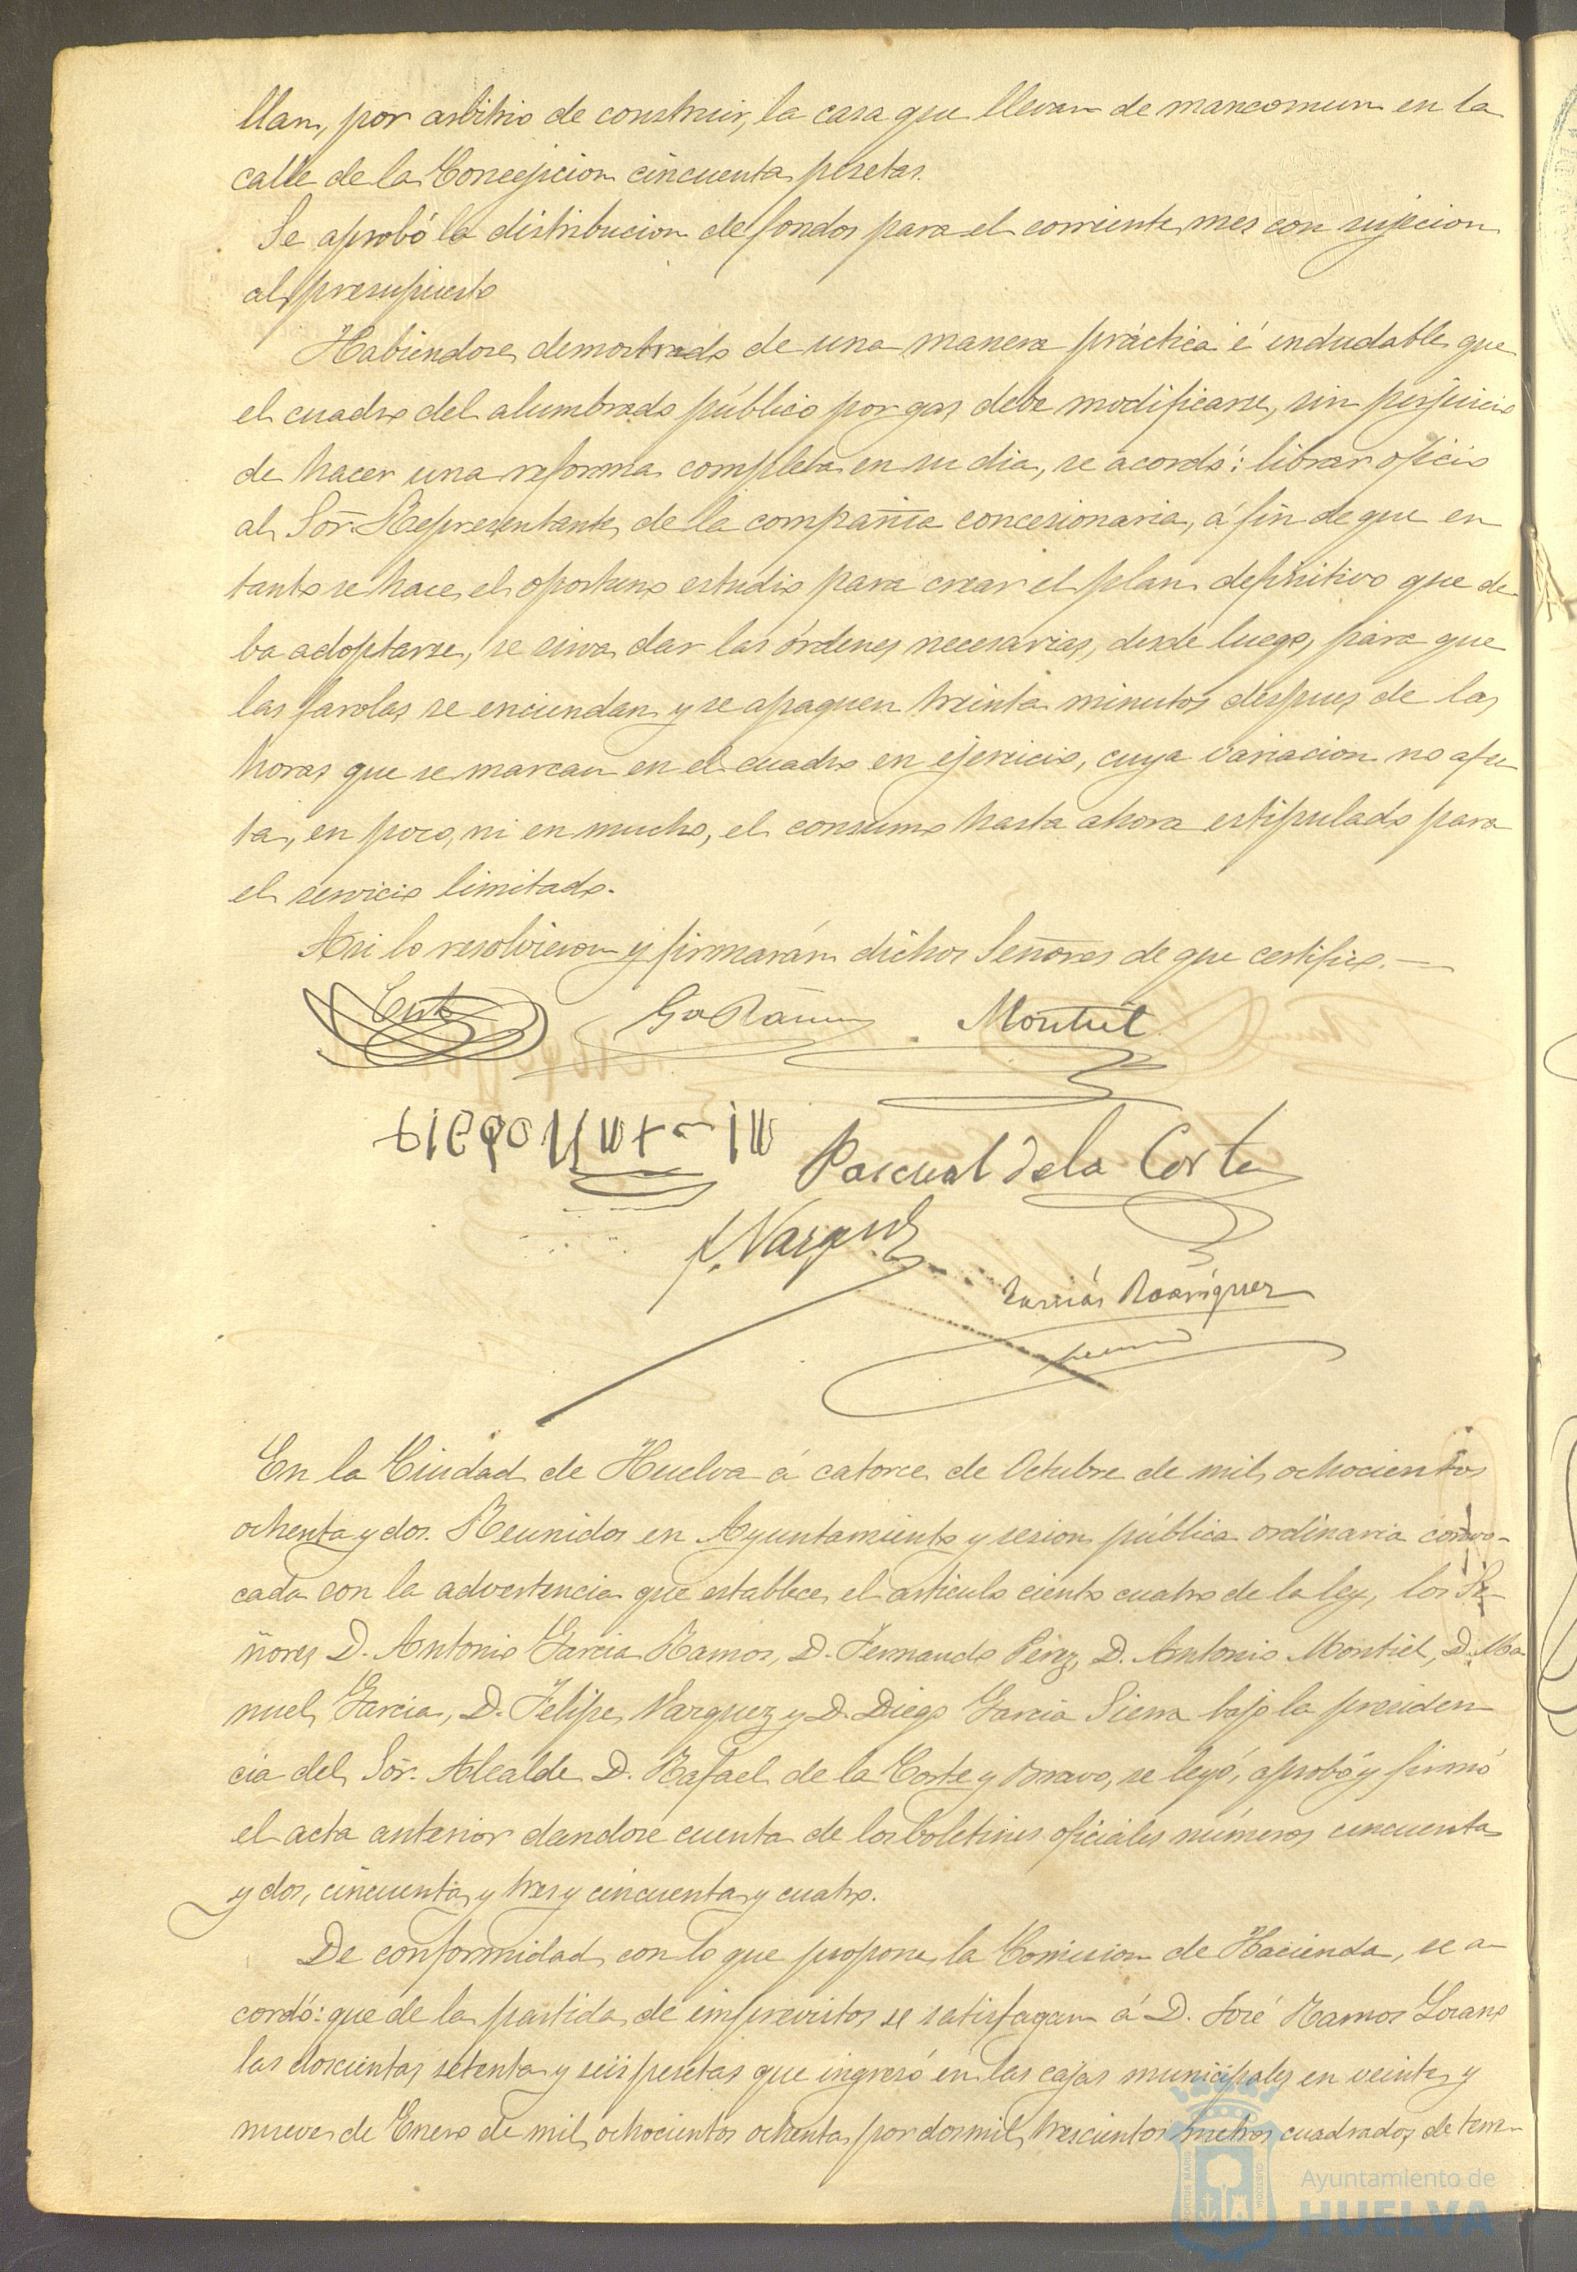 llan, por arbitrio de construir, la casa que llevan de mancomun en la
calle de la Concepcion cincuenta pesetas.
Se aprobó la distribucion de fondos para el corriente mes con sujecion
al presupuesto
Habiendose demostrado de una manera práctica é indudable que
el cuadro del alumbrado público por gas, debe modificarse, sin perjuicio
de hacer una reforma completa en su dia, se acordó: librar oficio
al Sor. Representante de la compañia concesionaria, á fin de que en
tanto se hace el oportuno estudio para crear el plan definitivo que de
ba adoptarse, se sirva dar las órdenes necesarias, desde luego, para que
las farolas se enciendan y se apaguen treinta minutos despues de las
horas que se marcan en el cuadro en ejercicio, cuya variacion no afec
ta, en poco, ni en mucho, el consumo hasta ahora estipulado para
el servicio limitado.
Asi lo resolvieron y firmarán dichos Señores de que certifico.—
Corte Ga Ramos Montiel
Pascual de la Corte
F. Vazquez
Rodriguez
En la Ciudad de Huelva á catorce de Octubre de mil ochocientos
ochenta y dos. Reunidos en Ayuntamiento y sesion pública ordinaria convo-
cada con la advertencia que establece el articulo ciento cuatro de la ley, los Se-
ñores D. Antonio Garcia Ramos, D. Fernando Perez, D. Antonio Montiel, D. Ma
nuel Garcia, D. Felipe Vazquez y D. Diego Garcia Sierra bajo la presiden
cia del Sor. Alcalde D. Rafael de la Corte y Bravo, se leyó, aprobó y firmó
el acta anterior dandose cuenta de los boletines oficiales números cincuenta
y dos, cincuenta y tres y cincuenta y cuatro.
De conformidad con lo que propone la Comision de Hacienda, se a
cordó: que de la partida de imprevistos se satisfagan á D. José Ramos Lozano
las doscientas setenta y seis pesetas que ingresó en las cajas municipales en veinte y
nueve de Enero de mil ochocientos ochenta por dos mil trescientos metros cuadrados de terre
Ayuntamiento de
HUELVA